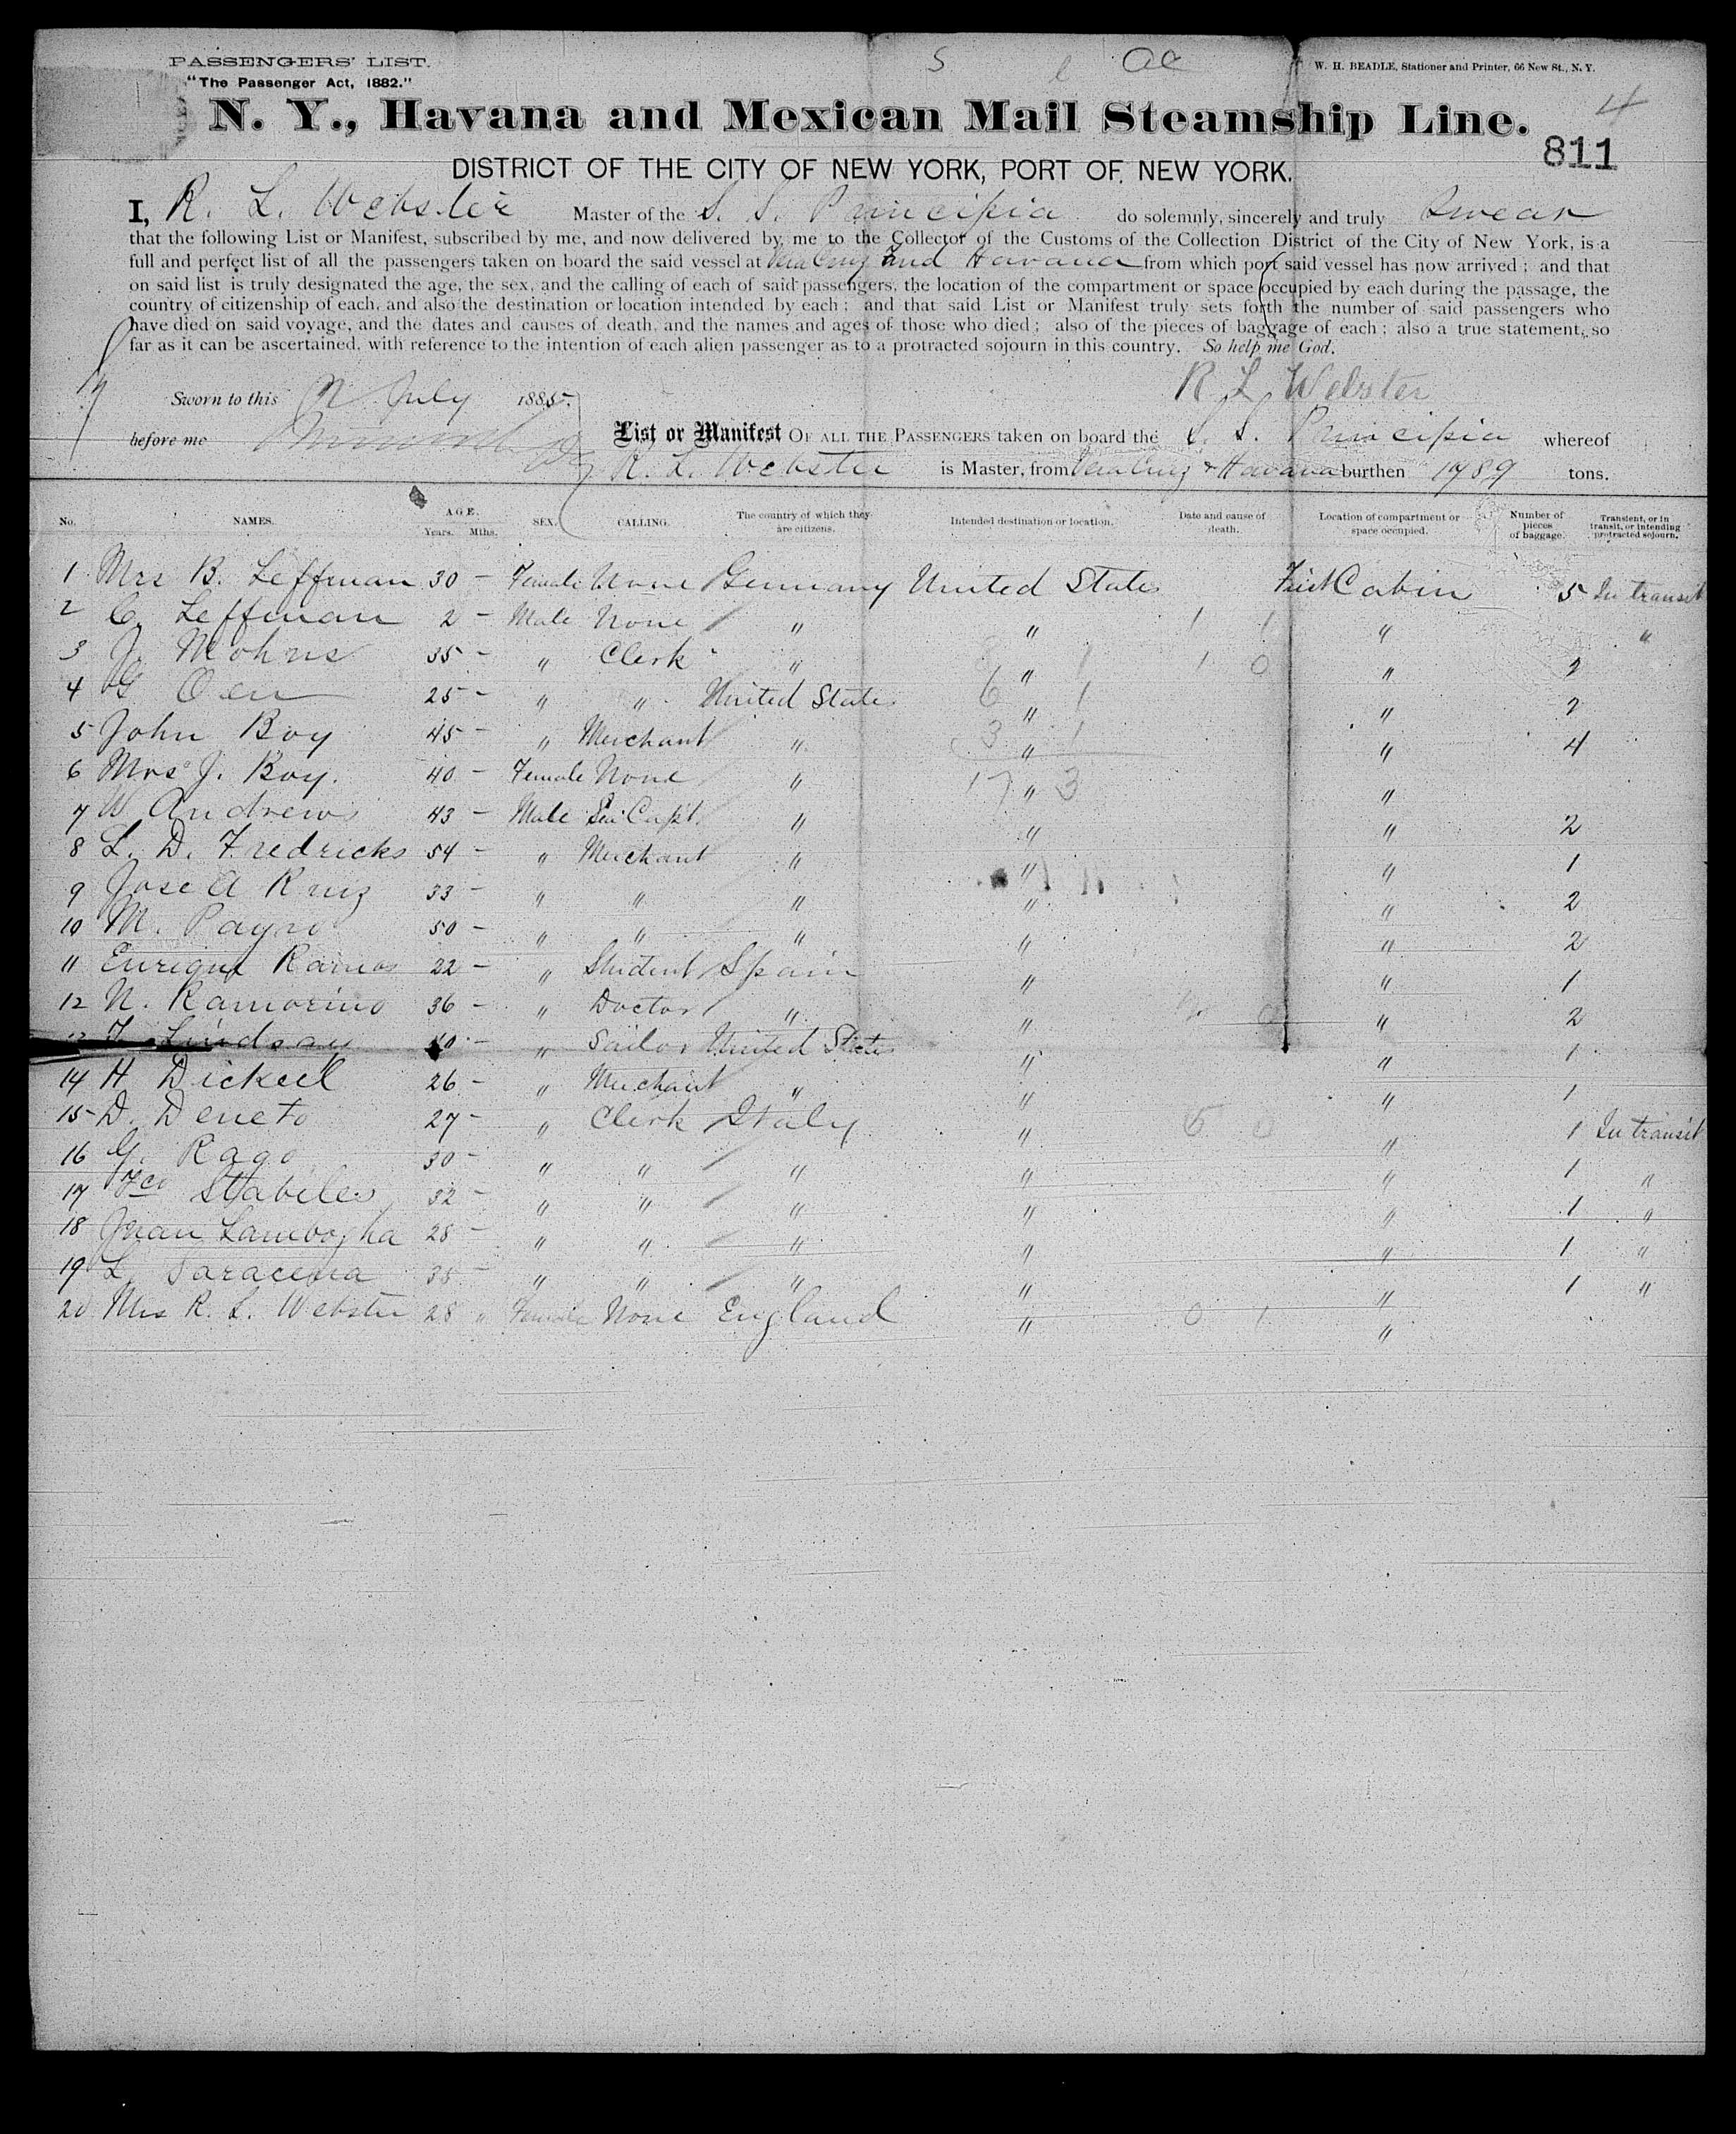 PASSENGERS' LIST.
"The Passenger Act, 1882."
W. H. BEADLE, Stationer and Printer, 66 New St., N. Y.
4
N. Y., Havana and Mexican Mail Steamship Line.
811
DISTRICT OF THE CITY OF NEW YORK, PORT OF NEW YORK.
I, R. L. Webster Master of the S. S. Principia do solemnly, sincerely and truly Swear
that the following List or Manifest, subscribed by me, and now delivered by me to the Collector of the Customs of the Collection District of the City of New York, is a
full and perfect list of all the passengers taken on board the said vessel at Vera Cruz and Havana from which port said vessel has now arrived; and that
on said list is truly designated the age, the sex, and the calling of each of said passengers, the location of the compartment or space occupied by each during the passage, the
country of citizenship of each, and also the destination or location intended by each; and that said List or Manifest truly sets forth the number of said passengers who
have died on said voyage, and the dates and causes of death, and the names and ages of those who died; also of the pieces of baggage of each; also a true statement, so
far as it can be ascertained, with reference to the intention of each alien passenger as to a protracted sojourn in this country. So help me God.
R L Webster
Sworn to this July 1885.
before me
List or Manifest OF ALL THE PASSENGERS taken on board the S. S. Principia whereof
R. L. Webster is Master, from Vera Cruz & Havana burthen 1789 tons.
No. NAMES. AGE. Years. Mths. SEX. CALLING. The country of which they are citizens. Intended destination or location. Date and cause of death. Location of compartment or space occupied. Number of pieces of baggage. Transient, or in transit, or intending protracted sojourn.
1 Mrs B. Leffman 30 - Female None Germany United States First Cabin 5 In transit
2 C. Leffman 2 - Male None " " " "
3 J. Mohns 35 - " Clerk " " " 2
4 G Oen 25 - " " United States " " 2
5 John Boy 45 - " Merchant " " " 4
6 Mrs J. Boy. 40 - Female None " " "
7 W Andrews 43 - Male Sea Capt. " " " 2
8 L. D. Fredricks 54 - " Merchant " " " 1
9 Jose A Ruiz 33 - " " " " " 2
10 M. Payro 50 - " " " " " 2
11 Enrique Ramos 22 - " Student Spain " " 1
12 N. Ramorino 36 - " Doctor " " " 2
13 Lindsay 40 - " Sailor United States " " 1
14 H Dickeel 26 - " Merchant " " " 1
15 D. Deneto 27 - " Clerk Italy " " 1 In transit
16 G. Rago 30 - " " " " " 1 "
17 Fco Stabiles 32 - " " " " " 1 "
18 Juan Lambogha 28 - " " " " " 1 "
19 L. Saracena 35 - " " " " " 1 "
20 Mrs R. L. Webster 28 " Female None England " "